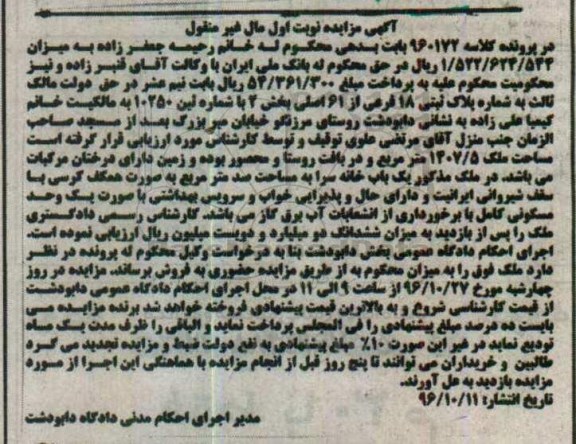 آگهی مزایده نوبت اول مال غیر منقول
در پرونده کلاسه ۹۶۰۱۷۲ بابت بدهی محکوم له خانم رحیمه جعفر زاده به میزان
۱/۵۲۲/۶۲۴/۵۴۴ ریال در حق محکوم له بانک ملی ایران با وکالت آقای قنبر زاده و نیز
محکومیت محکوم علیه به پرداخت مبلغ ۵۴/۳۶۱/۳۰۰ ریال بابت نیم عشر در حق دولت مالک
ثالث به شماره پلاک ثبتی ۱۸ فرعی از ۶۱ اصلی بخش ۲ با شماره ثبن ۱۰۲۵۰ به مالکیت خانم
کیمیا علی زاده به نشانی دابودشت روستای مرزنگو خیابان میر بزرگ بعد از مسجد صاحب
الزمان جنب منزل آقای مرتضی علوی توقیف و توسط کارشناس مورد ارزیابی قرار گرفته است
مساحت ملک ۱۴۰۷/۵ متر مربع و در بافت روستا و محصور بوده و زمین دارای درختان مرکبات
می باشد. در ملک مذکور یک باب خانه سرا به مساحت صد متر مربع به صورت همکف کرسی با
سقف شیروانی ایرانیت و دارای حال و پذیرایی خواب و سرویس بهداشتی با صورت یک وحد
مسکونی کامل با برخورداری از انشعابات آب برق گاز می باشد. کارشناس رسمی دادگستری
ملک را پس از بازدید به میزان ششدانگ دو میلیارد و دویست میلیون ریال ارزیابی نموده است.
اجرای احکام دادگاه عمومی بخش دابودشت بنا به درخواست وکیل محکوم له پرونده در نظر
دارد ملک فوق را به میزان محکوم به از طریق مزایده حضوری به فروش برساند. مزایده در روز
چهارشنبه مورخ ۹۶/۱۰/۲۷ از ساعت ۹ الی ۱۱ در محل اجرای احکام دادگاه عمومی دابودشت
از قیمت کارشناسی شروع و به بالاترین قیمت پیشنهادی فروخته خواهد شد برنده مزایده می
بایست ده درصد مبلغ پیشنهادی را فی المجلس پرداخت نماید و الباقی را ظرف مدت یک ماه
تودیع نماید در غیر این صورت ۱۰٪ مبلغ پیشنهادی به نفع دولت ضبط و مزایده تجدید می گرد
طالبین و خریداران می توانند تا پنج روز قبل از انجام مزایده با هماهنگی این اجرا از مورد
مزایده بازدید به عل آورند.
تاریخ انتشار: ۹۶/۱۰/۱۱
مدیر اجرای احکام مدنی دادگاه دابودشت